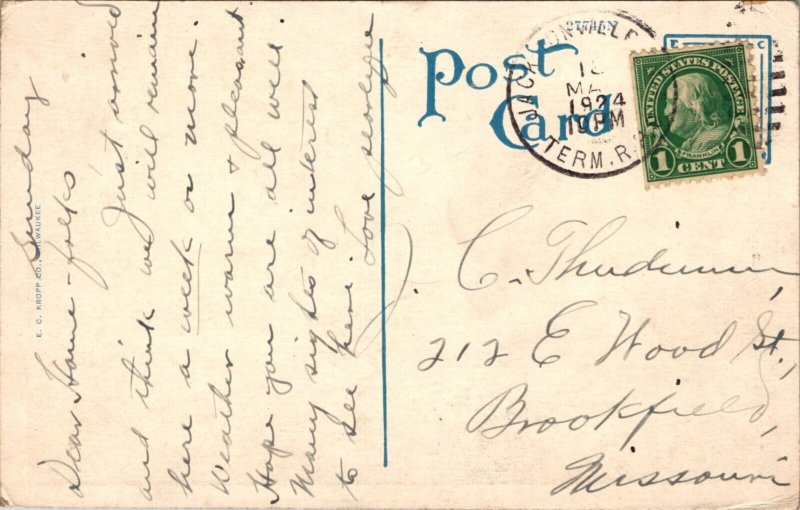 Sunday
Dear Home-folks
Just arrived
and think we will remain
here a week or more.
Weather warm + pleasant
Hope you are all well.
Many sights of interest
to see here. Love
E. C. KROPP CO., MILWAUKEE
Post
Card
27745N
JACKSONVILLE
MA
1924
10 PM
TERM. R.
UNITED STATES POSTAGE
FRANKLIN
1 CENT 1
C.
212 E Wood St.,
Brookfield,
Missouri